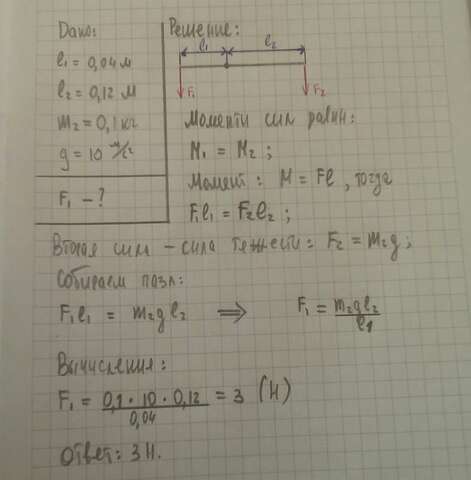 Дано:
l₁ = 0,04 м
l₂ = 0,12 м
m₂ = 0,1 кг
g = 10 м/с²
F₁ - ?
Решение:
l₁ l₂
F₁ F₂
Моменты сил равны:
M₁ = M₂ ;
Момент : M = Fl , тогда
F₁l₁ = F₂l₂ ;
Вторая сила - сила тяжести: F₂ = m₂g ;
Собираем пазл:
F₁l₁ = m₂gl₂ ⇒ F₁ = m₂gl₂ / l₁
Вычисления:
F₁ = 0,1 · 10 · 0,12 / 0,04 = 3 (Н)
Ответ: 3 Н.